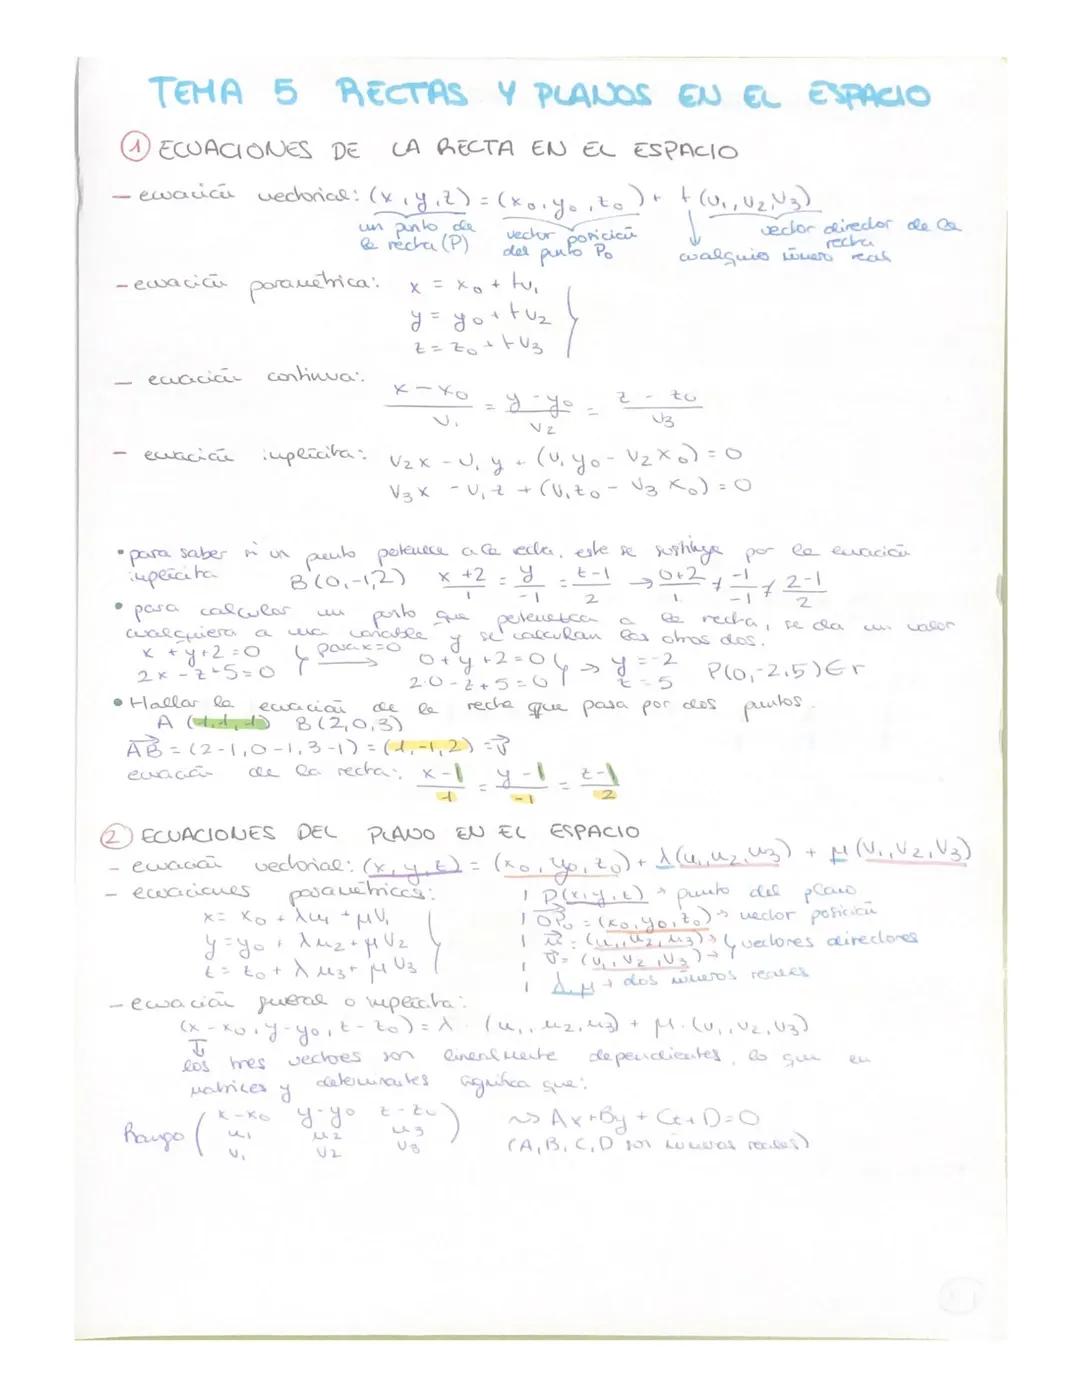 TEMA 5 RECTAS Y PLANOS EN EL ESPACIO
1 ECUACIONES DE LA RECTA EN EL ESPACIO
- ecuación vectorial: (x, y, z) = (x₀, y₀, z₀) + t (v₁, v₂, v₃)
un punto de la recta (P)
vector posición del punto P₀
cualquier número real
vector director de la recta
- ecuación paramétrica: x = x₀ + tv₁
y = y₀ + tv₂
z = z₀ + tv₃
- ecuación continua: (x - x₀)/v₁ = (y - y₀)/v₂ = (z - z₀)/v₃
- ecuación implícita: v₂x - v₁y + (v₁y₀ - v₂x₀) = 0
v₃x - v₁z + (v₁z₀ - v₃x₀) = 0
• para saber si un punto pertenece a la recta, este se sustituye por la ecuación
implícita B(0,-1,2) (x+2)/1 = y/-1 = (z-1)/2 → (0+2)/1 ≠ -1/-1 ≠ (2-1)/2
• para calcular un punto que pertenezca a la recta, se da un valor
cualquiera a una variable y se calculan las otros dos.
x + y + 2 = 0 } para x=0 → 0 + y + 2 = 0 } → y = -2 P(0,-2,5) ∈ r
2x - z + 5 = 0 2·0 - z + 5 = 0 z = 5
• Hallar la ecuación de la recta que pasa por dos puntos.
A (1,1,1) B (2,0,3)
AB = (2-1, 0-1, 3-1) = (1,-1,2) = v
ecuación de la recta: (x-1)/1 = (y-1)/-1 = (z-1)/2
2 ECUACIONES DEL PLANO EN EL ESPACIO
- ecuación vectorial: (x, y, z) = (x₀, y₀, z₀) + λ(u₁, u₂, u₃) + μ(v₁, v₂, v₃)
- ecuaciones paramétricas:
x = x₀ + λu₁ + μv₁
y = y₀ + λu₂ + μv₂
z = z₀ + λu₃ + μv₃
P(x, y, z) → punto del plano
OP₀ = (x₀, y₀, z₀) → vector posición
u = (u₁, u₂, u₃) → } vectores directores
v = (v₁, v₂, v₃) →
λ, μ → dos números reales
- ecuación general o implícita:
(x - x₀, y - y₀, z - z₀) = λ · (u₁, u₂, u₃) + μ · (v₁, v₂, v₃)
los tres vectores son linealmente dependientes, lo que en
matrices y determinantes significa que:
Rango ( x-x₀ y-y₀ z-z₀ ) ⇝ Ax + By + Cz + D = 0
u₁ u₂ u₃ (A, B, C, D son números reales)
v₁ v₂ v₃